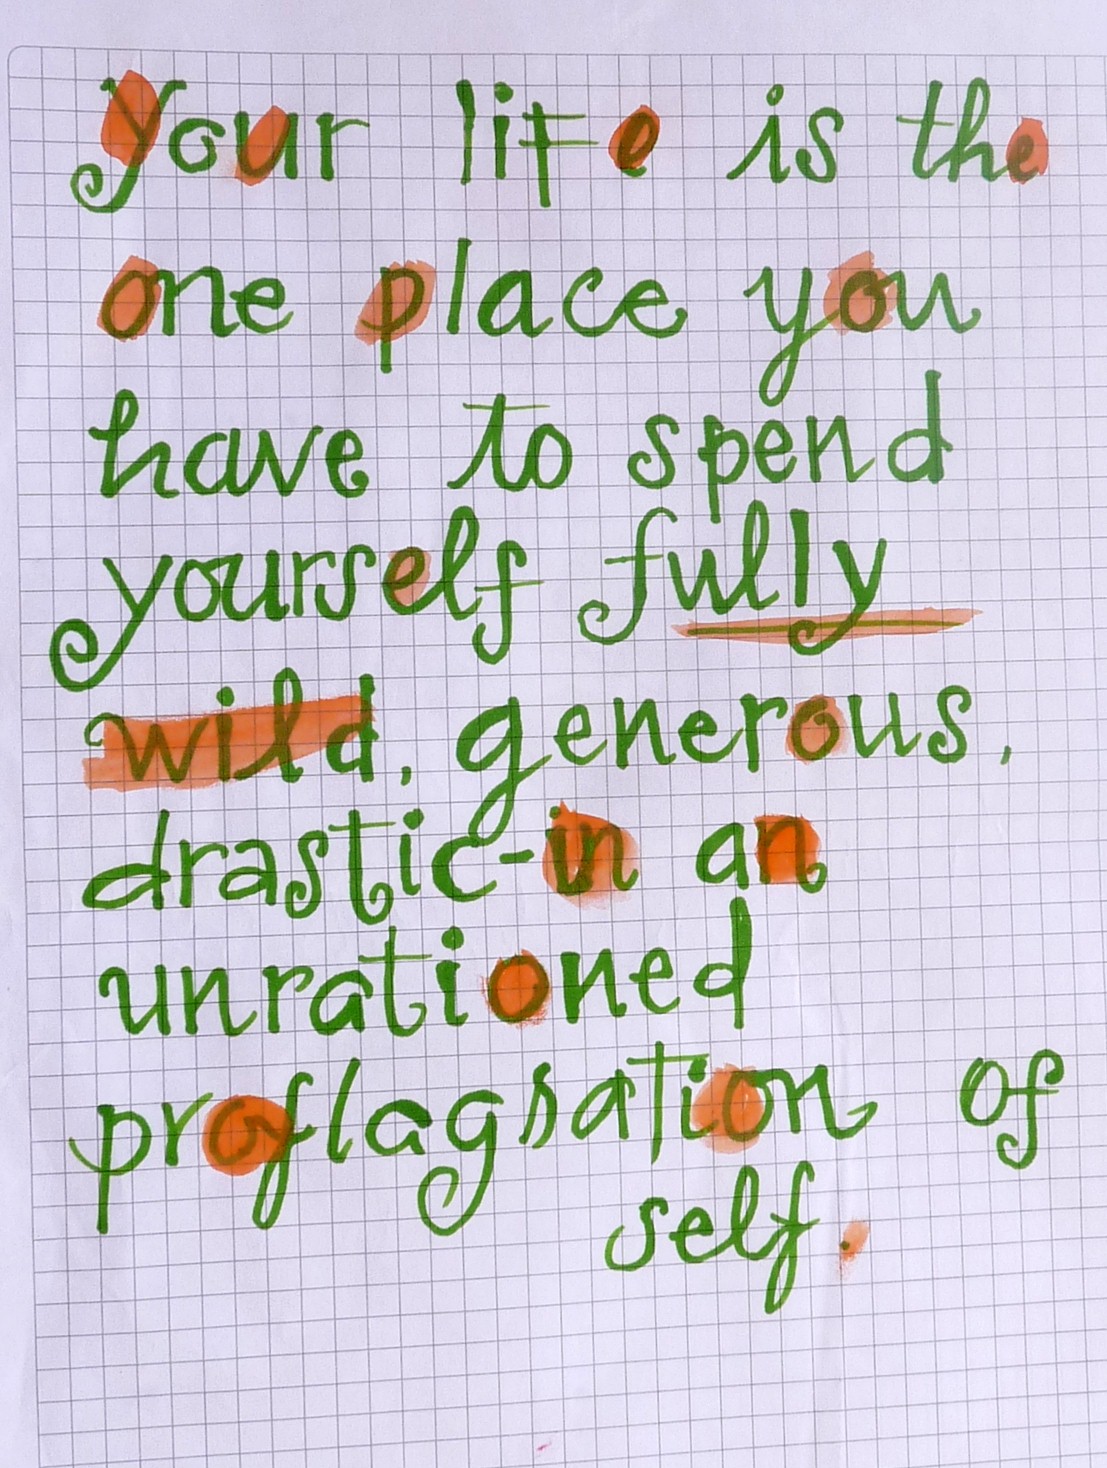 Your life is the
one place you
have to spend
yourself fully
wild, generous,
drastic-in an
unrationed
proflagsation of
self.